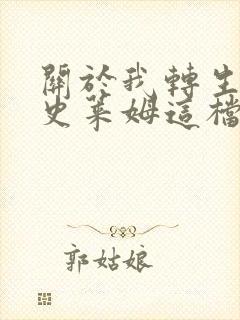 關於我轉生
史萊姆這檔
郭姑娘